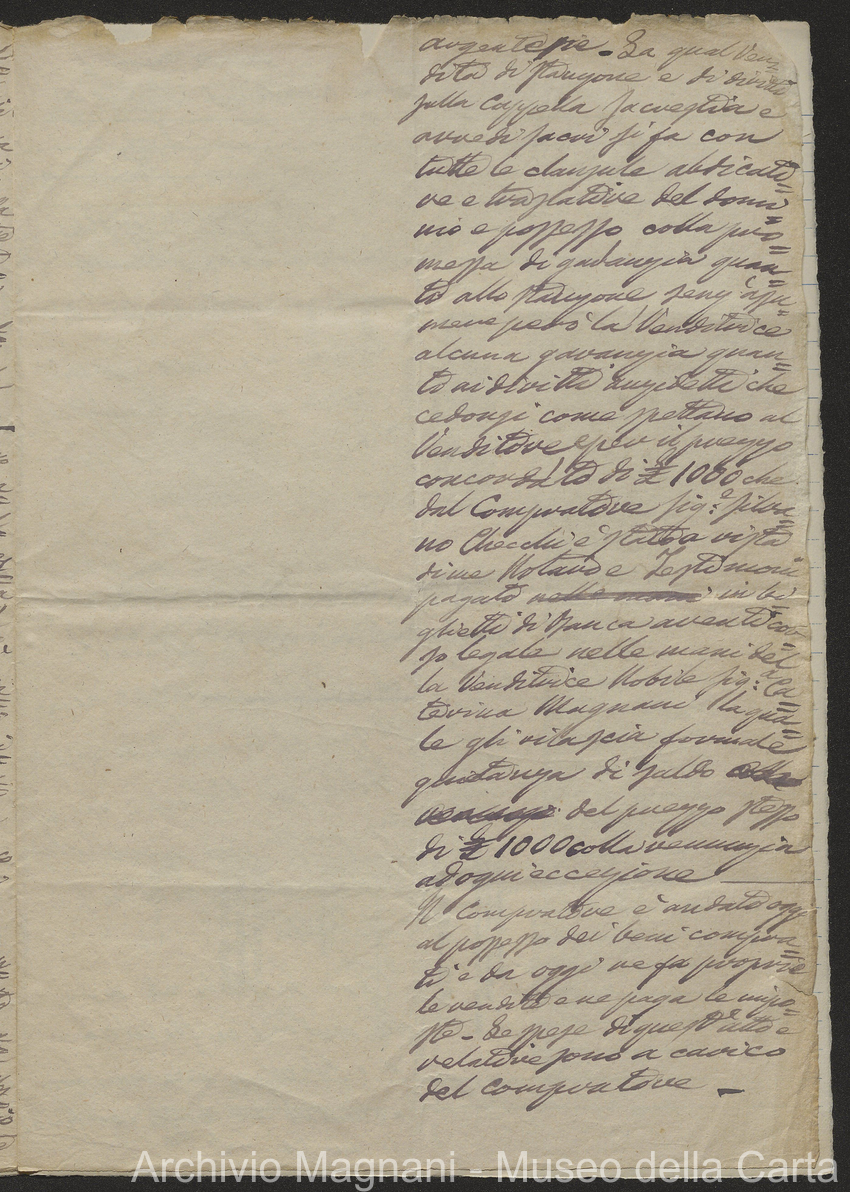 argentesie. La qual Ven=
dita di stanzone e di diritti
sulla Cappella sacrestia e
arredi sacri si fa con
tutte le clausule abdicati=
ve e traslative del domi=
nio e possesso colla pro=
messa di garanzia quan=
to allo stanzone senz'assu=
mere però la Venditrice
alcuna garanzia quan=
to ai diritti anzidetti che
cedonsi come spettano al
Venditore e per il prezzo
concordato di £ 1000 che
dal Compratore Sig.e Silva=
no Checchi è stato a vista
di me Notaro e Testimoni
pagato nelle mani in bi=
glietti di Banca aventi cor=
so legale nelle mani del=
la Venditrice Nobile Sig.a Ca=
terina Magnani la qua=
le gli rilascia formale
quitanza di saldo
del prezzo stesso
di £ 1000 colla renunzia
ad ogni eccezione
Il Compratore è andato oggi
al possesso dei beni compra=
ti e da oggi ne fa proprie
le rendite e ne paga le impo=
ste. Le spese di quest'atto e
relative sono a carico
del compratore
Archivio Magnani - Museo della Carta